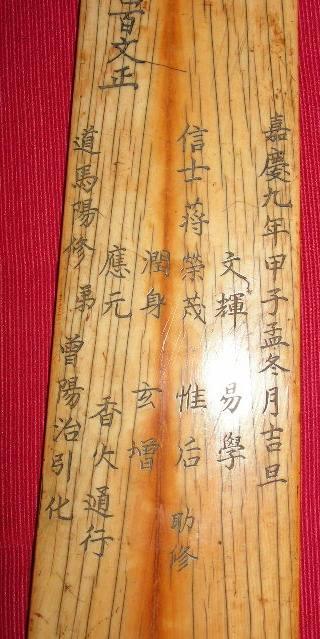 嘉慶九年甲子孟冬月吉旦
文輝 易學
信士蔣榮茂 惟后 助修
潤身 玄增
應元 香火通行
道馬陽修弟曾陽治引化
百文正